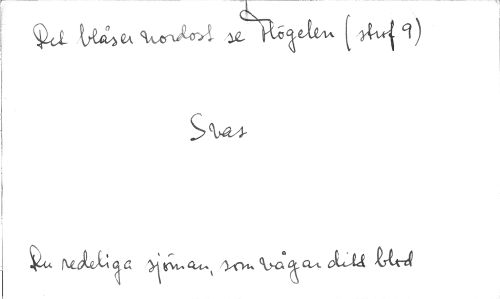 Det blåser nordost se Högelen (strof 9)
Svar
Du redeliga sjöman, som vågar ditt blod